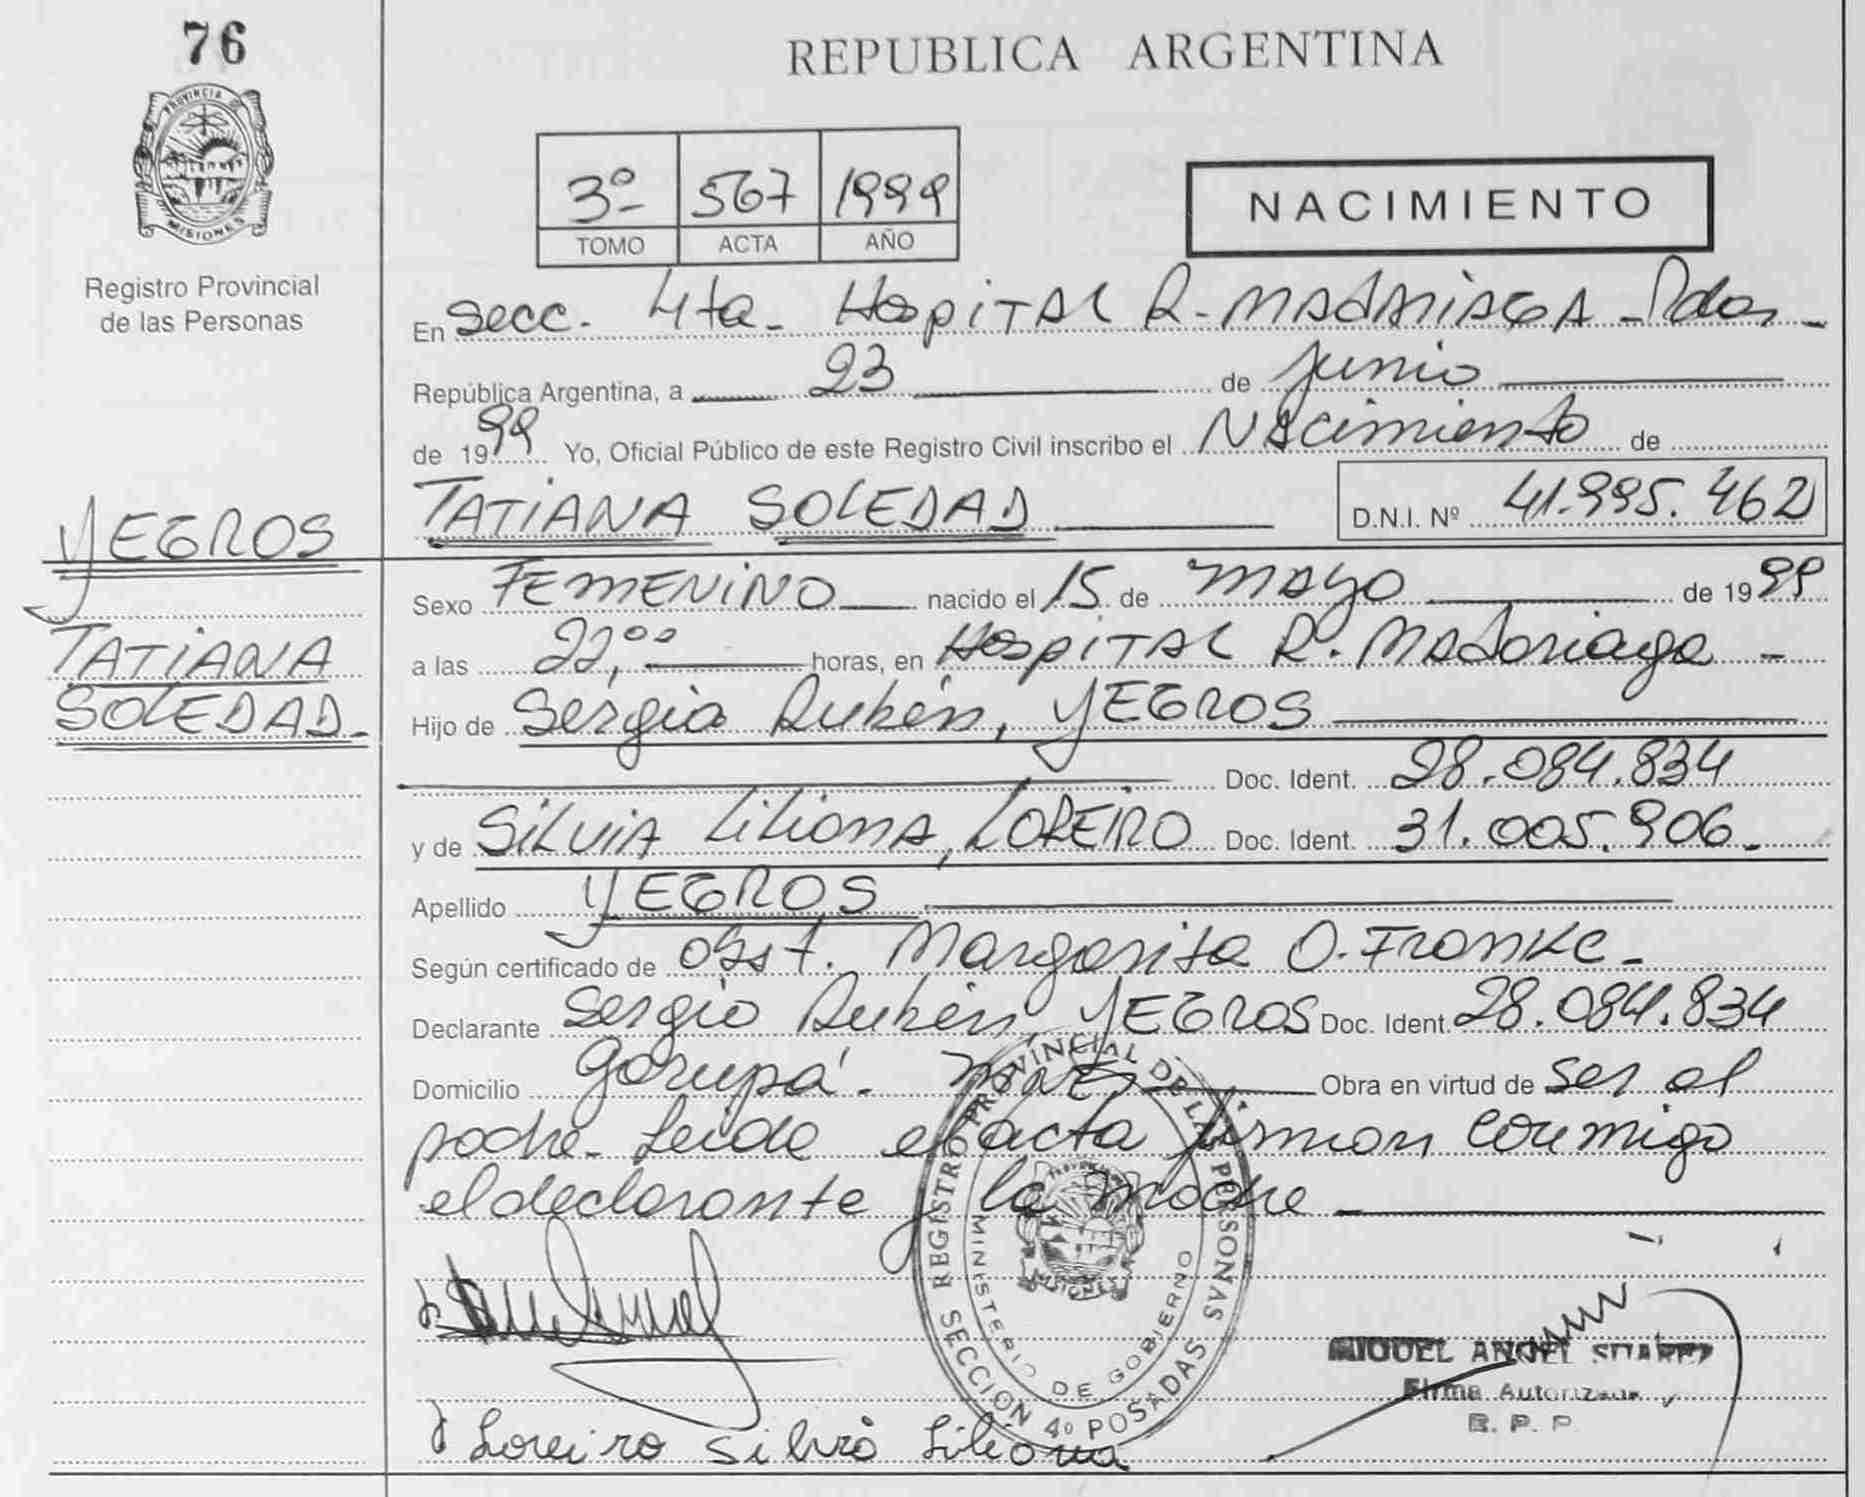 76
REPUBLICA ARGENTINA
PROVINCIA DE
MISIONES
Registro Provincial
de las Personas
3º 567 1999
TOMO ACTA AÑO
NACIMIENTO
En Secc. 4ta - Hospital R. MADARIAGA - Pdas -
República Argentina, a 23 de junio
de 1999 Yo, Oficial Público de este Registro Civil inscribo el Nacimiento de
TATIANA SOLEDAD D.N.I. Nº 41.995.462
YEGROS
TATIANA
SOLEDAD
Sexo FEMENINO nacido el 15 de mayo de 1999
a las 22,00 horas, en Hospital R. Madariaga -
Hijo de Sergio Rubén, YEGROS
Doc. Ident. 28.084.834
y de SILVIA Liliana, LOREIRO Doc. Ident. 31.005.906
Apellido YEGROS
Según certificado de Obst. Margarita O. Franke -
Declarante Sergio Rubén YEGROS Doc. Ident. 28.084.834
Domicilio Garupá - Mnes Obra en virtud de ser el
padre - Leida el acta firman conmigo
el declarante y la madre
REGISTRO PROVINCIAL DE LAS PERSONAS
MINISTERIO DE GOBIERNO
MISIONES
SECCION 4º POSADAS
MIGUEL ANGEL SUAREZ
Firma Autorizada
R. P. P.
Loreiro Silvia Liliana